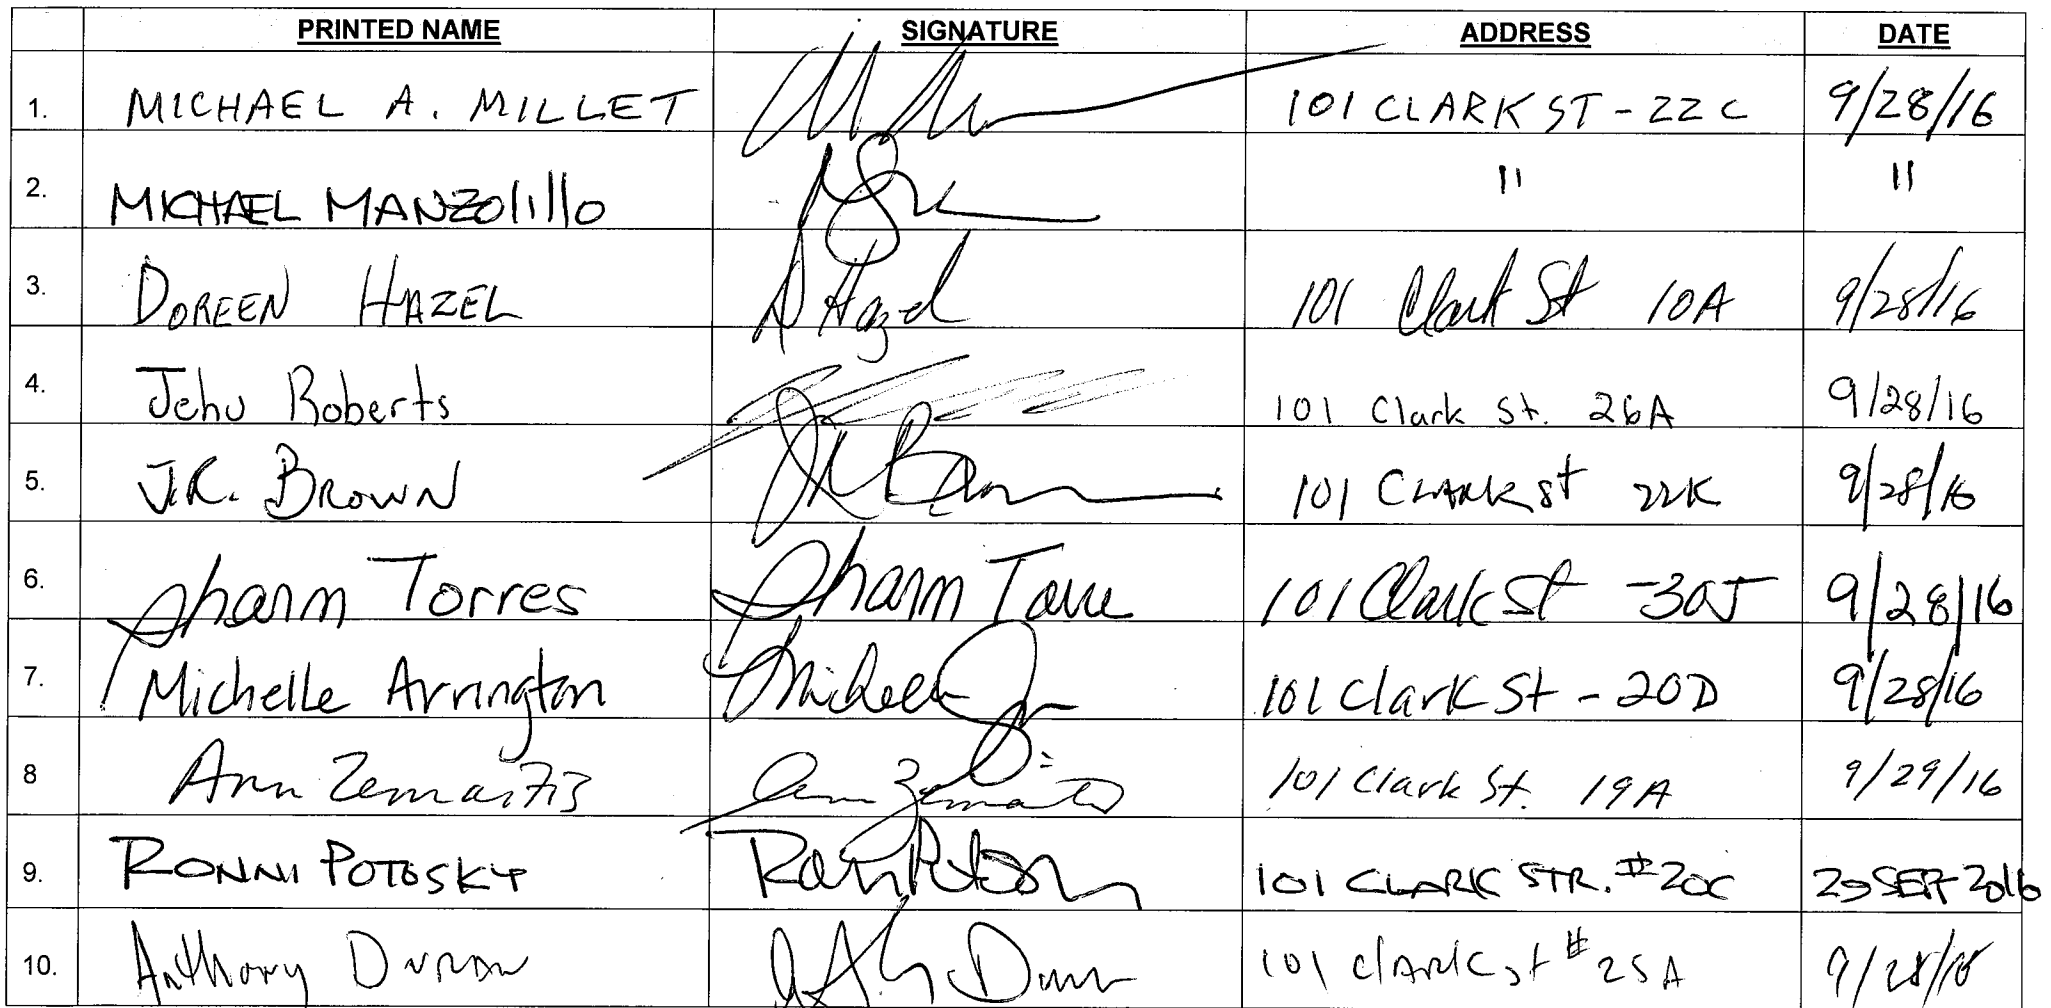 PRINTED NAME SIGNATURE ADDRESS DATE
1. MICHAEL A. MILLET 101 CLARK ST - 22C 9/28/16
2. MICHAEL MANZOlillo " "
3. DOREEN HAZEL D Hazel 101 Clark St 10A 9/28/16
4. Jehu Roberts 101 Clark St. 26A 9/28/16
5. J.R. BROWN JR Brown 101 CLARK st 22K 9/28/16
6. Sharon Torres Sharon Torres 101 Clark St - 30J 9/28/16
7. Michelle Arrington Michelle 101 Clark St - 20D 9/28/16
8 Ann Zemaitis Ann Zemaitis 101 Clark St. 19A 9/29/16
9. RONNI POTOSKY 101 CLARK STR. #20C 29 SEPT 2016
10. Anthony Duran 101 Clark st # 25A 9/28/16